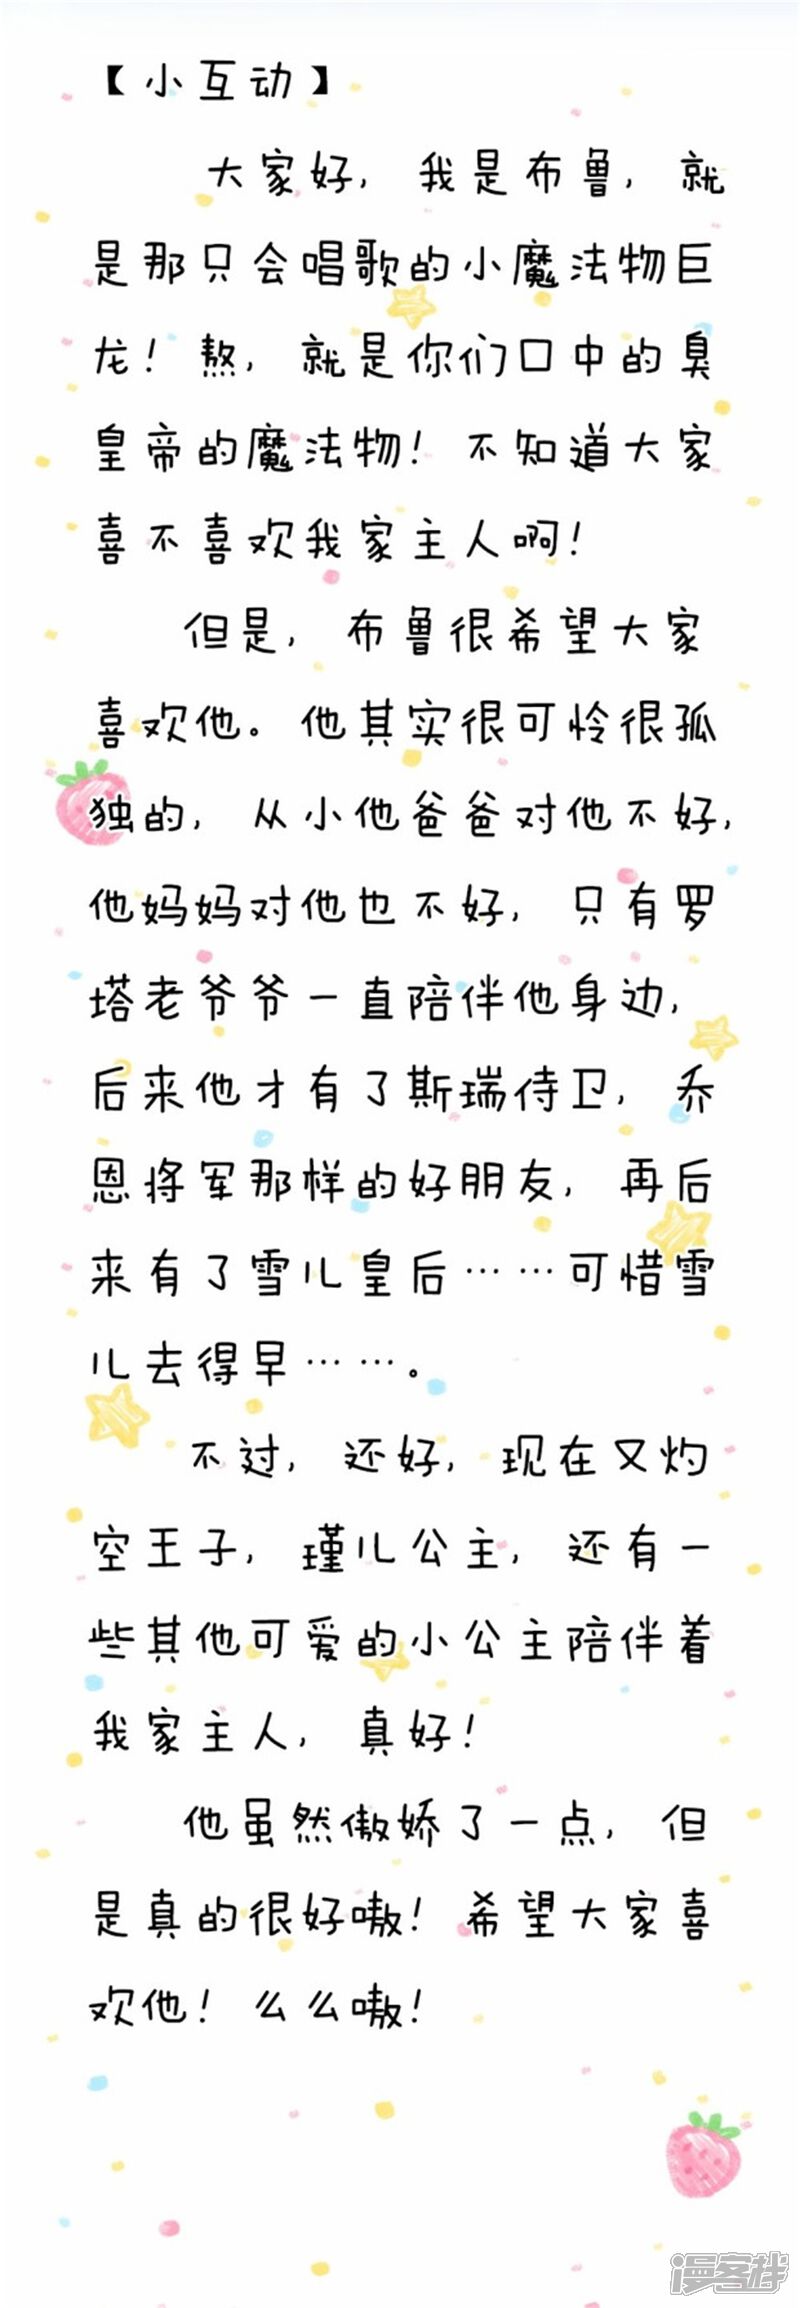 【小互动】
大家好，我是布鲁，就
是那只会唱歌的小魔法物巨
龙！熬，就是你们口中的臭
皇帝的魔法物！不知道大家
喜不喜欢我家主人啊！
但是，布鲁很希望大家
喜欢他。他其实很可怜很孤
独的，从小他爸爸对他不好，
他妈妈对他也不好，只有罗
塔老爷爷一直陪伴他身边，
后来他才有了斯瑞侍卫，乔
恩将军那样的好朋友，再后
来有了雪儿皇后……可惜雪
儿去得早……。
不过，还好，现在又灼
空王子，瑾儿公主，还有一
些其他可爱的小公主陪伴着
我家主人，真好！
他虽然傲娇了一点，但
是真的很好嗷！希望大家喜
欢他！么么嗷！
漫客栈